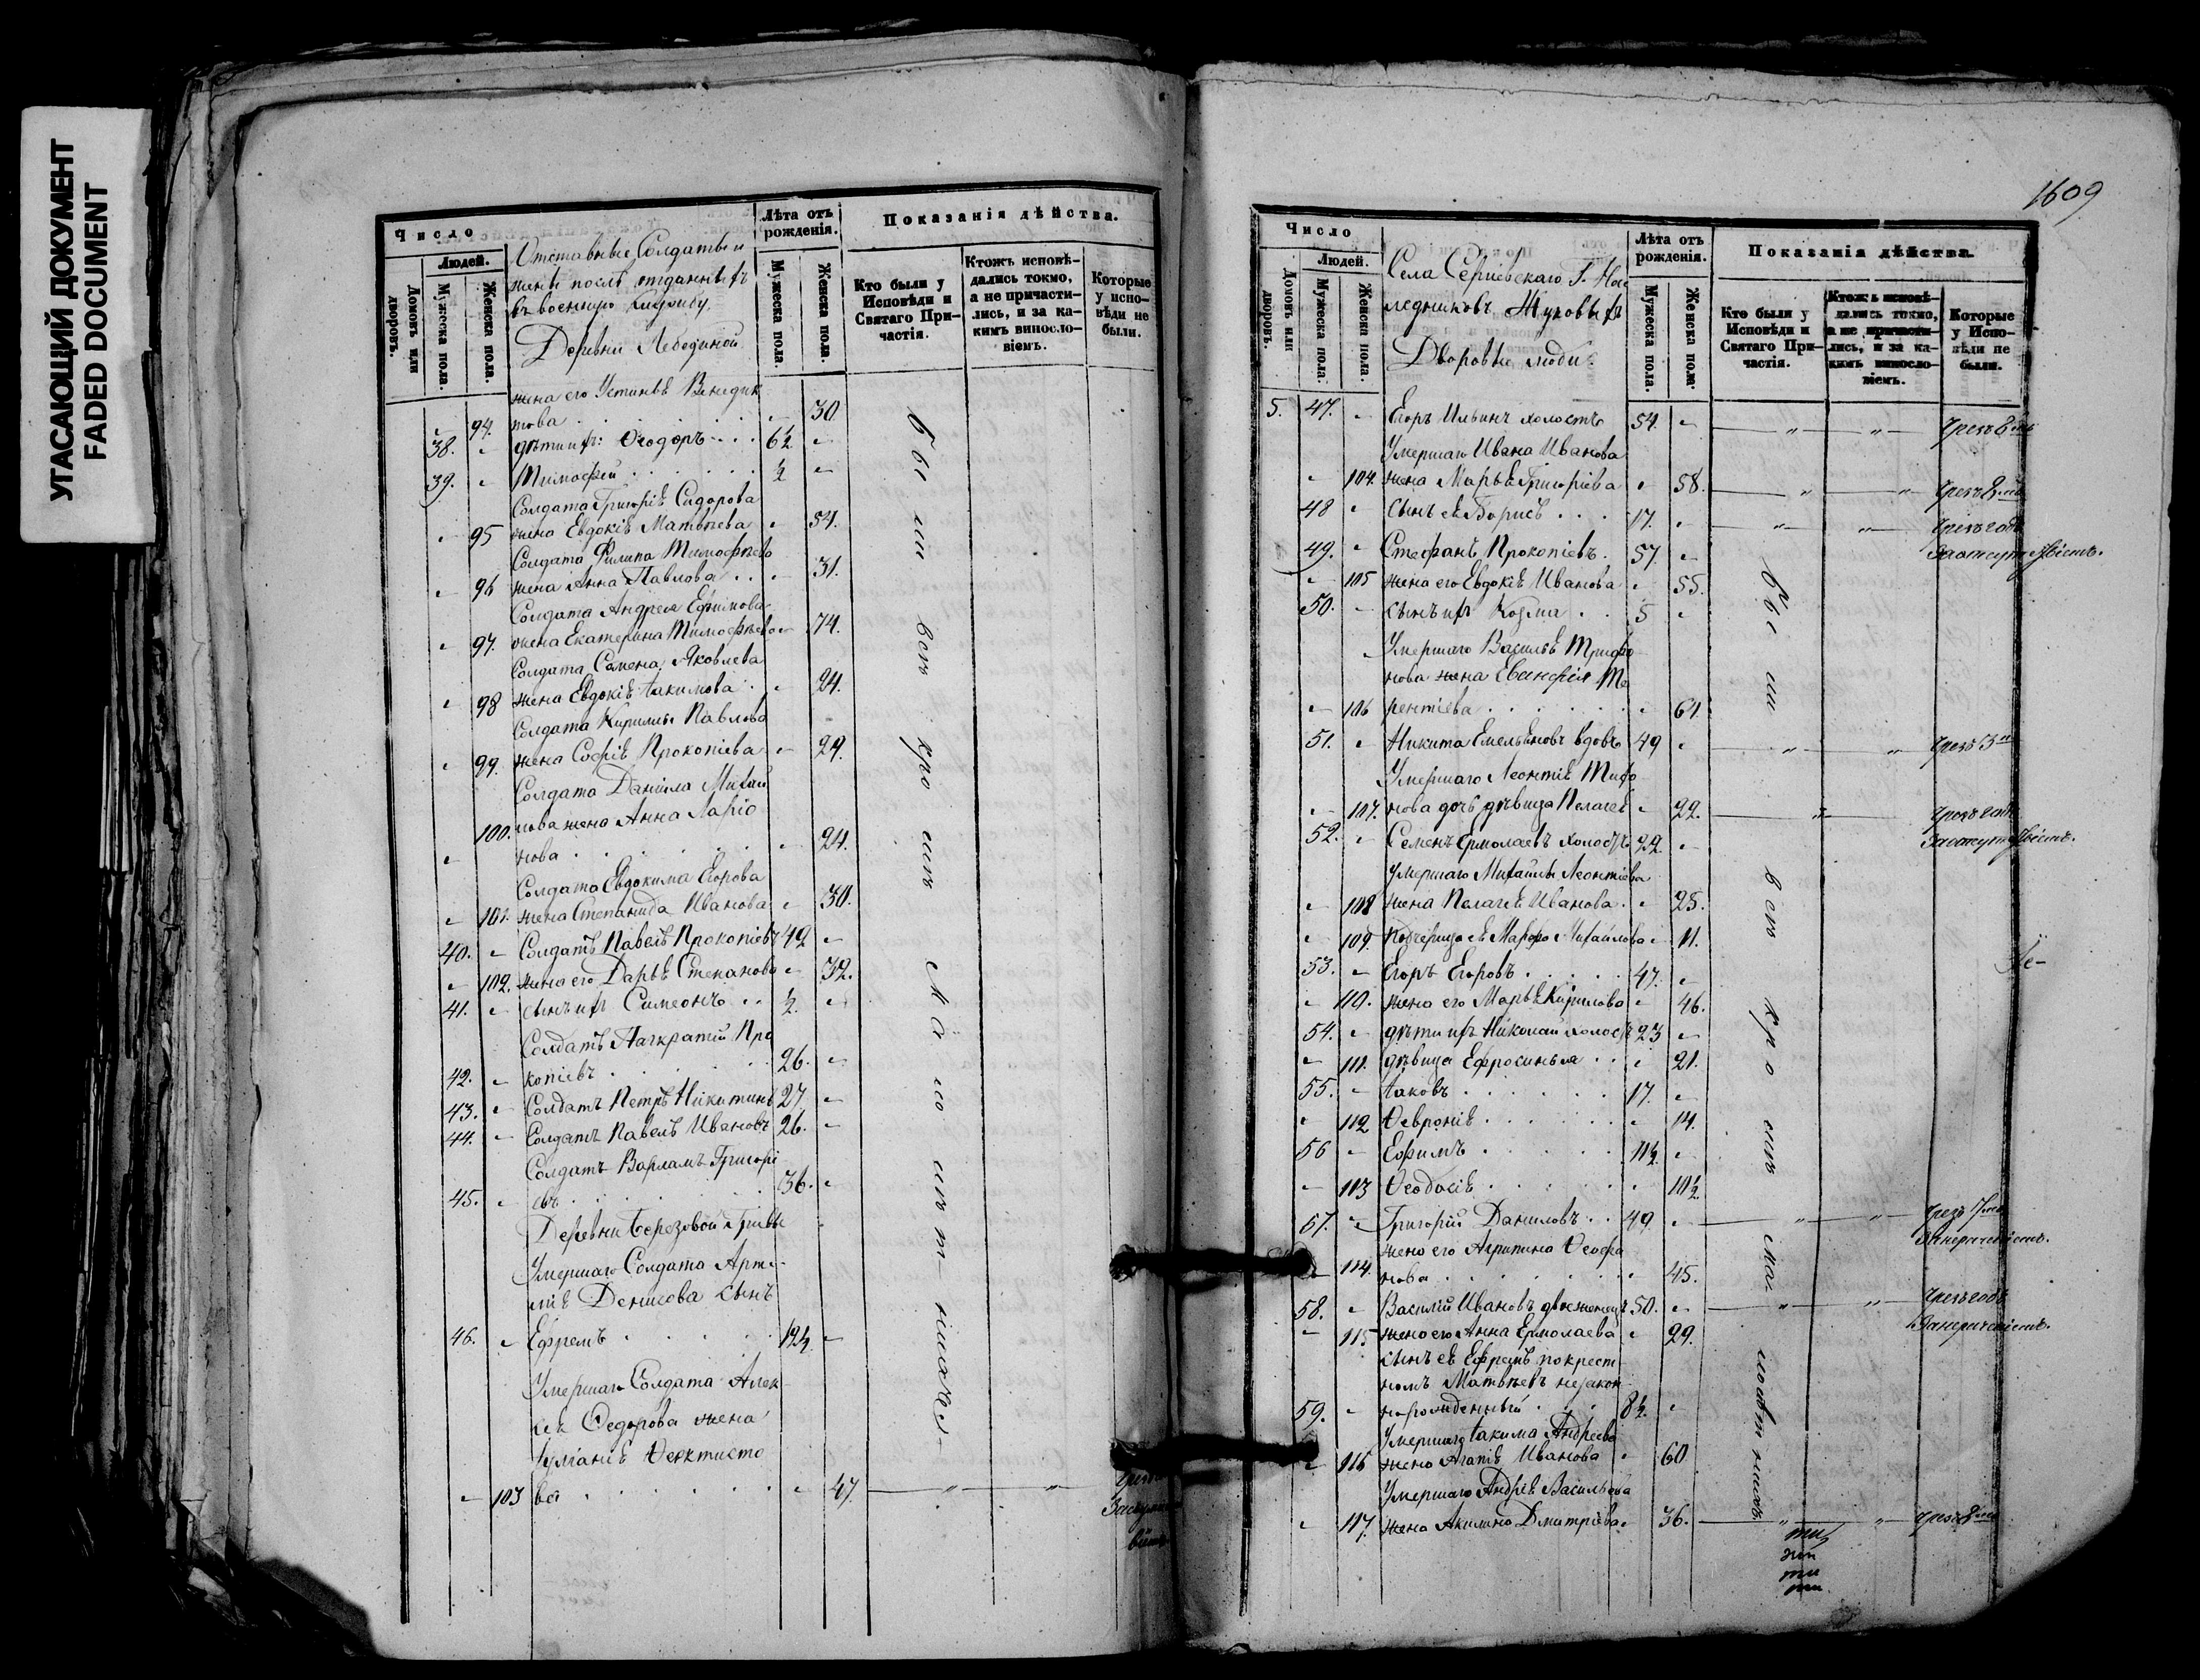 УГАСАЮЩИЙ ДОКУМЕНТ
FADED DOCUMENT
Число
Людей.
Домовъ или дворовъ.
Мужеска пола.
Женска пола.
Отставные Солдаты и
жены послѣ отданныхъ
въ военную службу.
Деревни Лебединой
Лѣта отъ рожденія.
Мужеска пола.
Женска пола.
Показанія дѣйства.
Кто были у Исповѣди и Святаго Причастія.
Ктожъ исповѣдались токмо, а не причастились, и за какимъ винословіемъ.
Которые у исповѣди не были.
жена его Устинья Венедик
94. това 30
38. дѣти ихъ: Ѳеодоръ 6½
39. Тимофей ½
Солдата Григорія Сидорова
95 жена Евдокія Матвѣева 54.
Солдата Филипа Тимофѣева
96 жена Анна Павлова 31.
Солдата Андрея Ефимова
97. жена Екатерина Тимофѣева 74.
Солдата Семена Яковлева
98 жена Евдокія Іакимова 24.
Солдата Кирилы Павлова
99. жена Софія Прокопіева 29.
Солдата Даніила Михай
100. лова жена Анна Ларіо
нова 24.
Солдата Евдокима Егорова
101. жена Степанида Иванова 30.
40. Солдатъ Павелъ Прокопіевъ 42
102. жена его Дарья Степанова 32.
41. сынъ ихъ Симеонъ ½
Солдатъ Панкратій Про
42. копіевъ 26.
43. Солдатъ Петръ Никитинъ 27
44. Солдатъ Павелъ Ивановъ 26.
Солдатъ Варламъ Григорі
45. евъ 36.
Деревни Березовой Гривы
Умершаго Солдата Арте-
мія Денисова сынъ
46. Ефремъ 12½
Умершаго Солдата Алек-
сея Ѳедорова жена
Ѳеоктисто
103 ва 47.
Были вси кромѣ малолѣтнихъ
1609
Число
Людей.
Домовъ или дворовъ.
Мужеска пола.
Женска пола.
Села Сергіевскаго Г. Нас
ледниковъ Жуковыхъ
Дворовые люди.
Лѣта отъ рожденія.
Мужеска пола.
Женска пола.
Показанія дѣйства.
Кто были у Исповѣди и Святаго Причастія.
Ктожъ исповѣдались токмо, а не причастились, и за какимъ винословіемъ.
Которые у Исповѣди не были.
5. 47. Егоръ Ильинъ холостъ 54.
Умершаго Ивана Иванова
104. жена Марья Григоріева 58.
48 сынъ ея Борисъ 17.
49. Стефанъ Прокопіевъ 57.
105 жена его Евдокія Иванова 55.
50. сынъ ихъ Козма 5
Умершаго Василья Трифо
нова жена Евпифія Те
106 рентіева 61
51. Никита Емельяновъ вдовъ 49
Умершаго Леонтія Тихо
107. нова дочь дѣвица Пелагея 22.
52. Семенъ Ермолаевъ холостъ 72
Умершаго Михаилы Леонтіева
108 жена Пелагея Иванова 25.
109. подчерица ея Марфа Михайлова 11.
53. Егоръ Егоровъ 47.
110. жена его Марья Кирилова 46.
54. дѣти ихъ Николай холостъ 23
111. дѣвица Ефросинья 21.
55. Іаковъ 17.
112 Ѳевронія 14.
56 Ефимъ 11½
113 Ѳеодосія 10½
57. Григорій Даниловъ 49
жена его Агрипина Ѳеофа
114. нова 45.
58. Василій Ивановъ двоеженецъ 50.
115 жена его Анна Ермолаева 29.
сынъ ея Ефремъ по крест-
номъ Матвѣевъ незакон
59. норожденный 8½
Умершаго Іакима Андреева
116 жена Агапія Иванова 60
Умершаго Андрея Васильева
117. жена Акилина Дмитріева 36.
Были вси кромѣ малолѣтнихъ